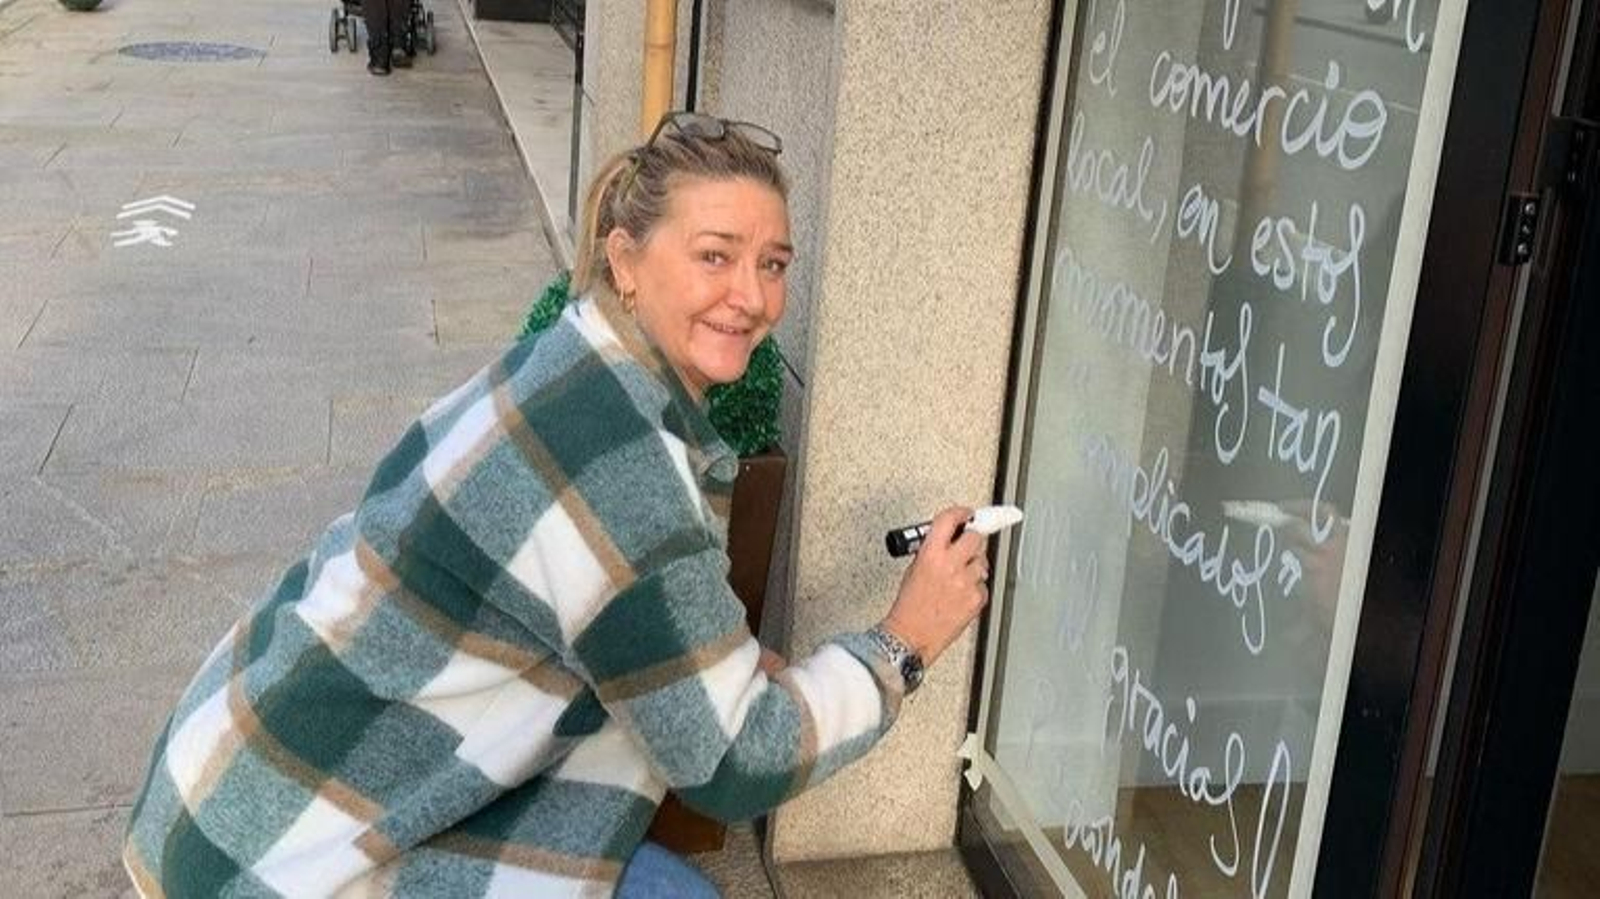 en
el comercio
local, en estos
momentos tan
complicados"
Mil
gracias!